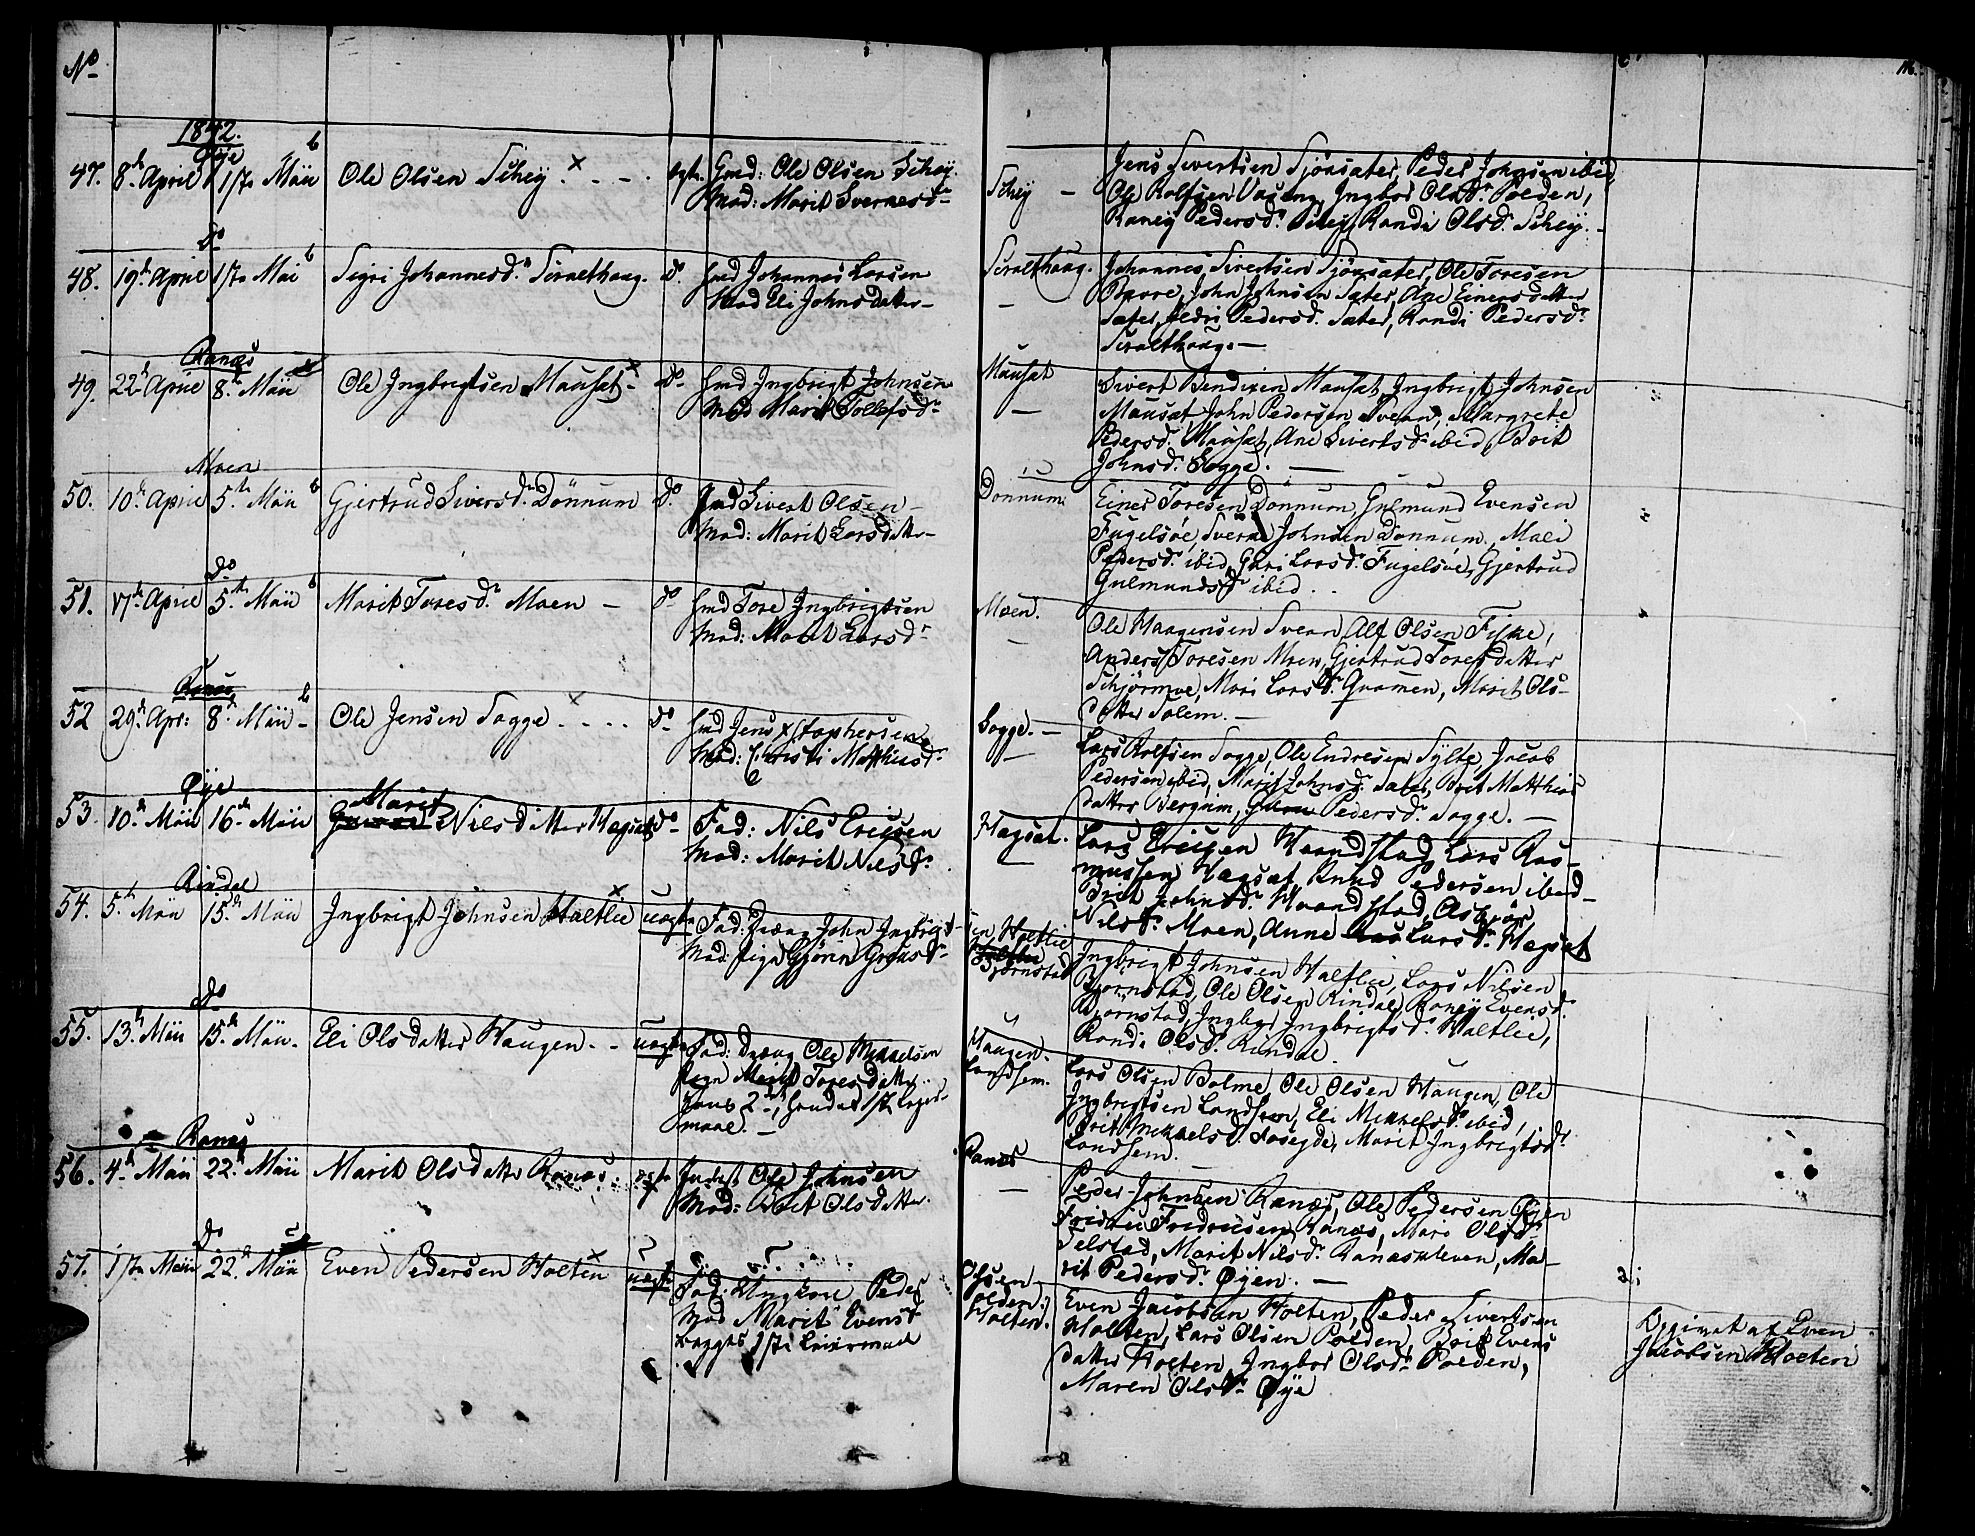 No
116.
1842.
Øye
47. 8de April 1ste Maii Ole Olsen Schey × - - . ægte. Gmd: Ole Olsen Schey.
Mod: Marit Sversd.
Schey
Jens Sivertsen Sjøsæter, Peder Johnsen ibid
Ole Rolfsen Ingbor Olsdr. Polden,
Raney Pedersdr. Schey, Randi Olsd. Schey.
Do
48. 19de April 1ste Mai Sigri Johannesdr. Seralthaug. do. Gmd Johannes Larsen
Mod Eli Johnsdatter
Seralthaug.
Johannes Sivertsen Sjøsæter, Ole Toresen
John Johnsen Sæter, Ane Einersdatter
Sæter, Pedersd. Sæter, Randi Pedersdr.
Seralthaug.
Ranæs
49. 22de April 8de Maii Ole Ingbrigtsen Mausæt - do - Gmd Ingbrigt Johnsen
Mod Marit Tollefsdr
Mausæt
Sivert Bendixen Mausæt, Ingbrigt Johnsen
Mausæt John Pedersen Svean, Margrete
Pedersd. Mausæt, Ane Sivertsd. ibid, Brit
Johnsd. Sogge.
Moen
50. 10de April 5te Maii Gjertrud Siversdr. Dönnum do Gmd Sivert Olsen
Mod: Marit Larsdatter
Dönnum.
Einer Toresen Dönnum, Gulmund Evensen
Fugelsøe, Johnsen Dönnum, Mali
Pedersd. ibid, Guri Larsd. Fugelsøe, Gjertrud
Gulmundsd. ibid.
Do
51. 17de April 5te Maii Marit Toresdr. Moen - do Gmd Tore Ingbrigtsen
Mod: Marit Larsdr
Moen.
Ole Haagensen Svean, Alf Olsen
Anders Toresen Moen, Gjertrud Toresdatter
Schjørmoe, Mari Larsdr. Gramen, Marit Ols-
datter Solem.
Ranæs
52 29de Apr: 8de Maii - Ole Jensen Sogge. . . . do Gmd Jens Xstophersen
Mod: Christi Mathiasd.
Sogge.
Lars Rolfsen Sogge, Ole Endresen Sylte Jacob
Pedersen ibid, Marit Johnsdr. Sæter, Brit Matthias
datter Bergum, Pedersdr. Sogge.
Øye
53. 10de Maii 16de Maii Marit Nilsdatter Hagset do - Fad: Nils Ericsen
Mod: Marit Nilsdr.
Hagset.
Lars Ericsen Haandstad, Lars Ras-
mussen Hagset, Knud Pedersen ibid
Brit Johnsdr. Haandstad,
Nilsdr. Moen, Anne Larsdr. Hagset
Rindal
54. 5te Maii 15de Maii Ingbrigt Johnsen Haltlie uægte Fad: Dreng John Ingbrigt-
Mod: Pige Gjørin
sen Haltlie
Bjørnstad
Ingbrigt Johnsen Haltlie, Lars Nilsen
Bjørnstad, Ole Olsen Rindal, Raney Evensd.
Bjørnstad, Ingbrigtsdr. Haltlie,
Randi Olsdr. Rindal.
Do
55. 13de Maii 15de Maii. Eli Olsdatter Haugen. - uægte Fad: Dreng Ole Mikkelsen
Pigen Marit Toresdatter
hans 2det, hendes 1ste Leier-
maal.
Haugen.
Landsem.
Lars Olsen Bolme, Ole Olsen Haugen, Ole
Ingbrigtsen Landsem, Eli Mikkelsdr. ibid,
Brit Mikkelsd. Marit Ingbrigtsdr.
Landsem.
Ranæs
56. 4de Maii 22de Maii Marit Olsdatter Ranæs. ægte Inderst Ole Johnsen
Mod: Brit Olsdatter.
Ranæs
Peder Johnsen Ranæs, Ole Pedersen Øyen
Fredricsen Ranæs, Mari Olsdr.
Telstad, Marit Nilsdr. Ranæskleven, Ma-
rit Pedersdr. Øyen.
Do
57. 17de Maii 22de Maii Even Pedersen Holten uægte Fad: Ungkarl Peder
Mod Marit Evensd.
begges 1ste Leiermaal
Olsen
Polden:
Holten.
Even Jacobsen Holten, Peder Sivertsen
Holten, Lars Olsen Polden, Brit Evens
datter Holten, Ingbor Olsdr. Polden,
Maren Olsdr. Øye
Opgivet af Even
Jacobsen Holten